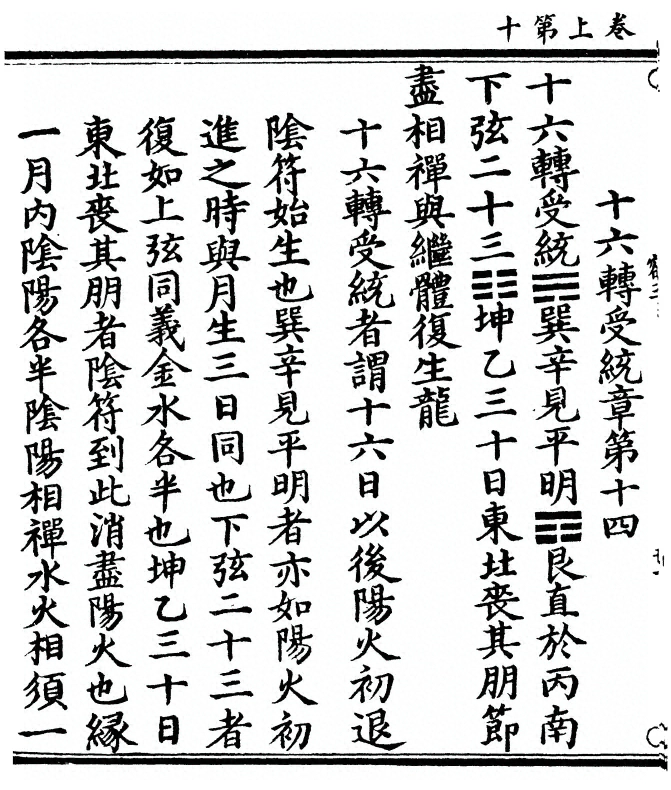 卷上第十
十六轉受統章第十四
十六轉受統☴巽辛見平明☶艮直於丙南
下弦二十三☷坤乙三十日東北喪其朋節
盡相禪與繼體復生龍
十六轉受統者謂十六日以後陽火初退
陰符始生也巽辛見平明者亦如陽火初
進之時與月生三日同也下弦二十三者
復如上弦同義金水各半也坤乙三十日
東北喪其朋者陰符到此消盡陽火也緣
一月內陰陽各半陰陽相禪水火相須一